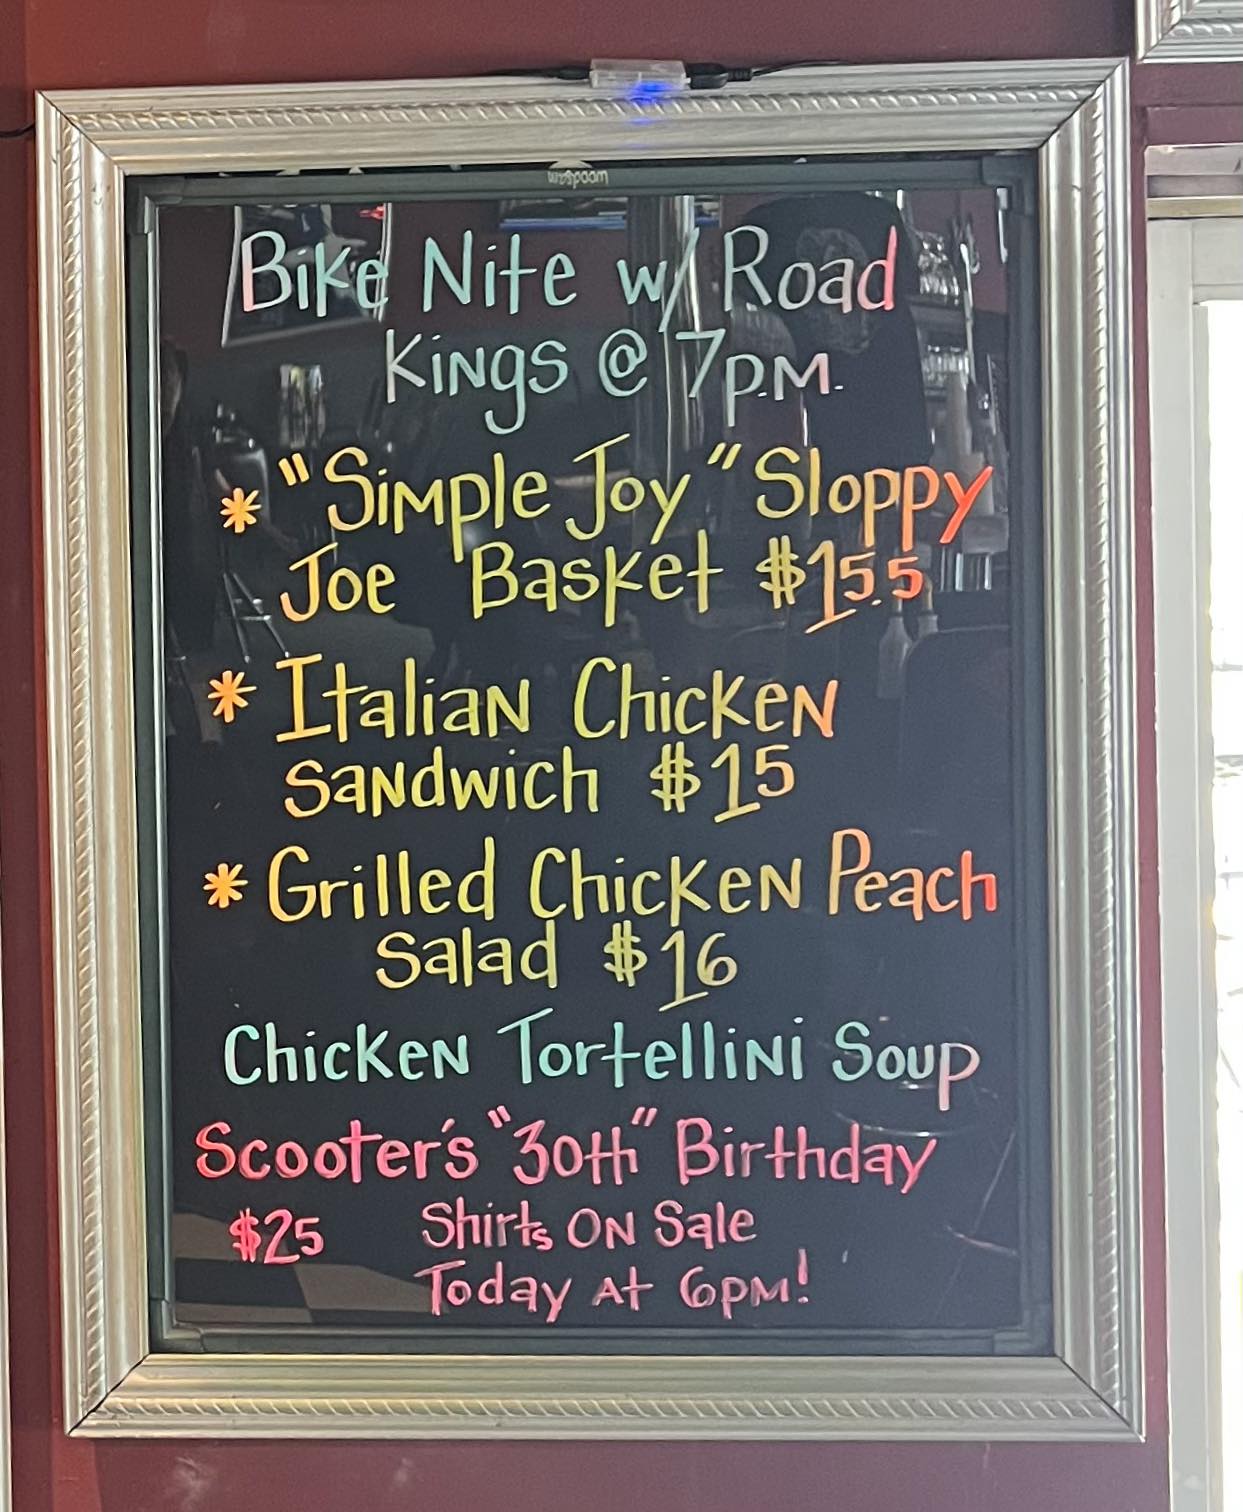 Bike Nite w/ Road
Kings @ 7p.m.
* "Simple Joy" Sloppy
Joe Basket $15.5
* Italian Chicken
Sandwich $15
* Grilled Chicken Peach
Salad $16
Chicken Tortellini Soup
Scooter's "30th" Birthday
$25 Shirts on Sale
Today at 6pm!